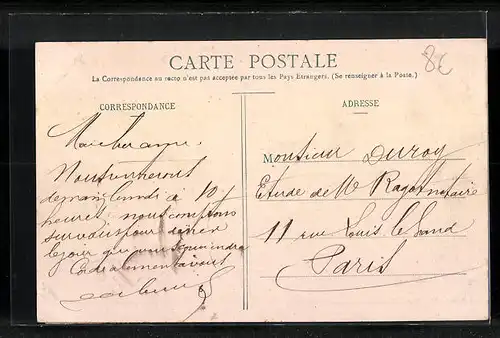 8E
CARTE POSTALE
La Correspondance au recto n'est pas acceptée par tous les Pays Etrangers. (Se renseigner à la Poste.)
CORRESPONDANCE
ADRESSE
Mon cher ami,
demain lundi à 10
heures, nous comptons
sur vous pour dîner
le jour qui vous conviendra
Cordialement à vous
Monsieur Duroy
Etude de Me Ragot notaire
11 rue Louis le Grand
Paris